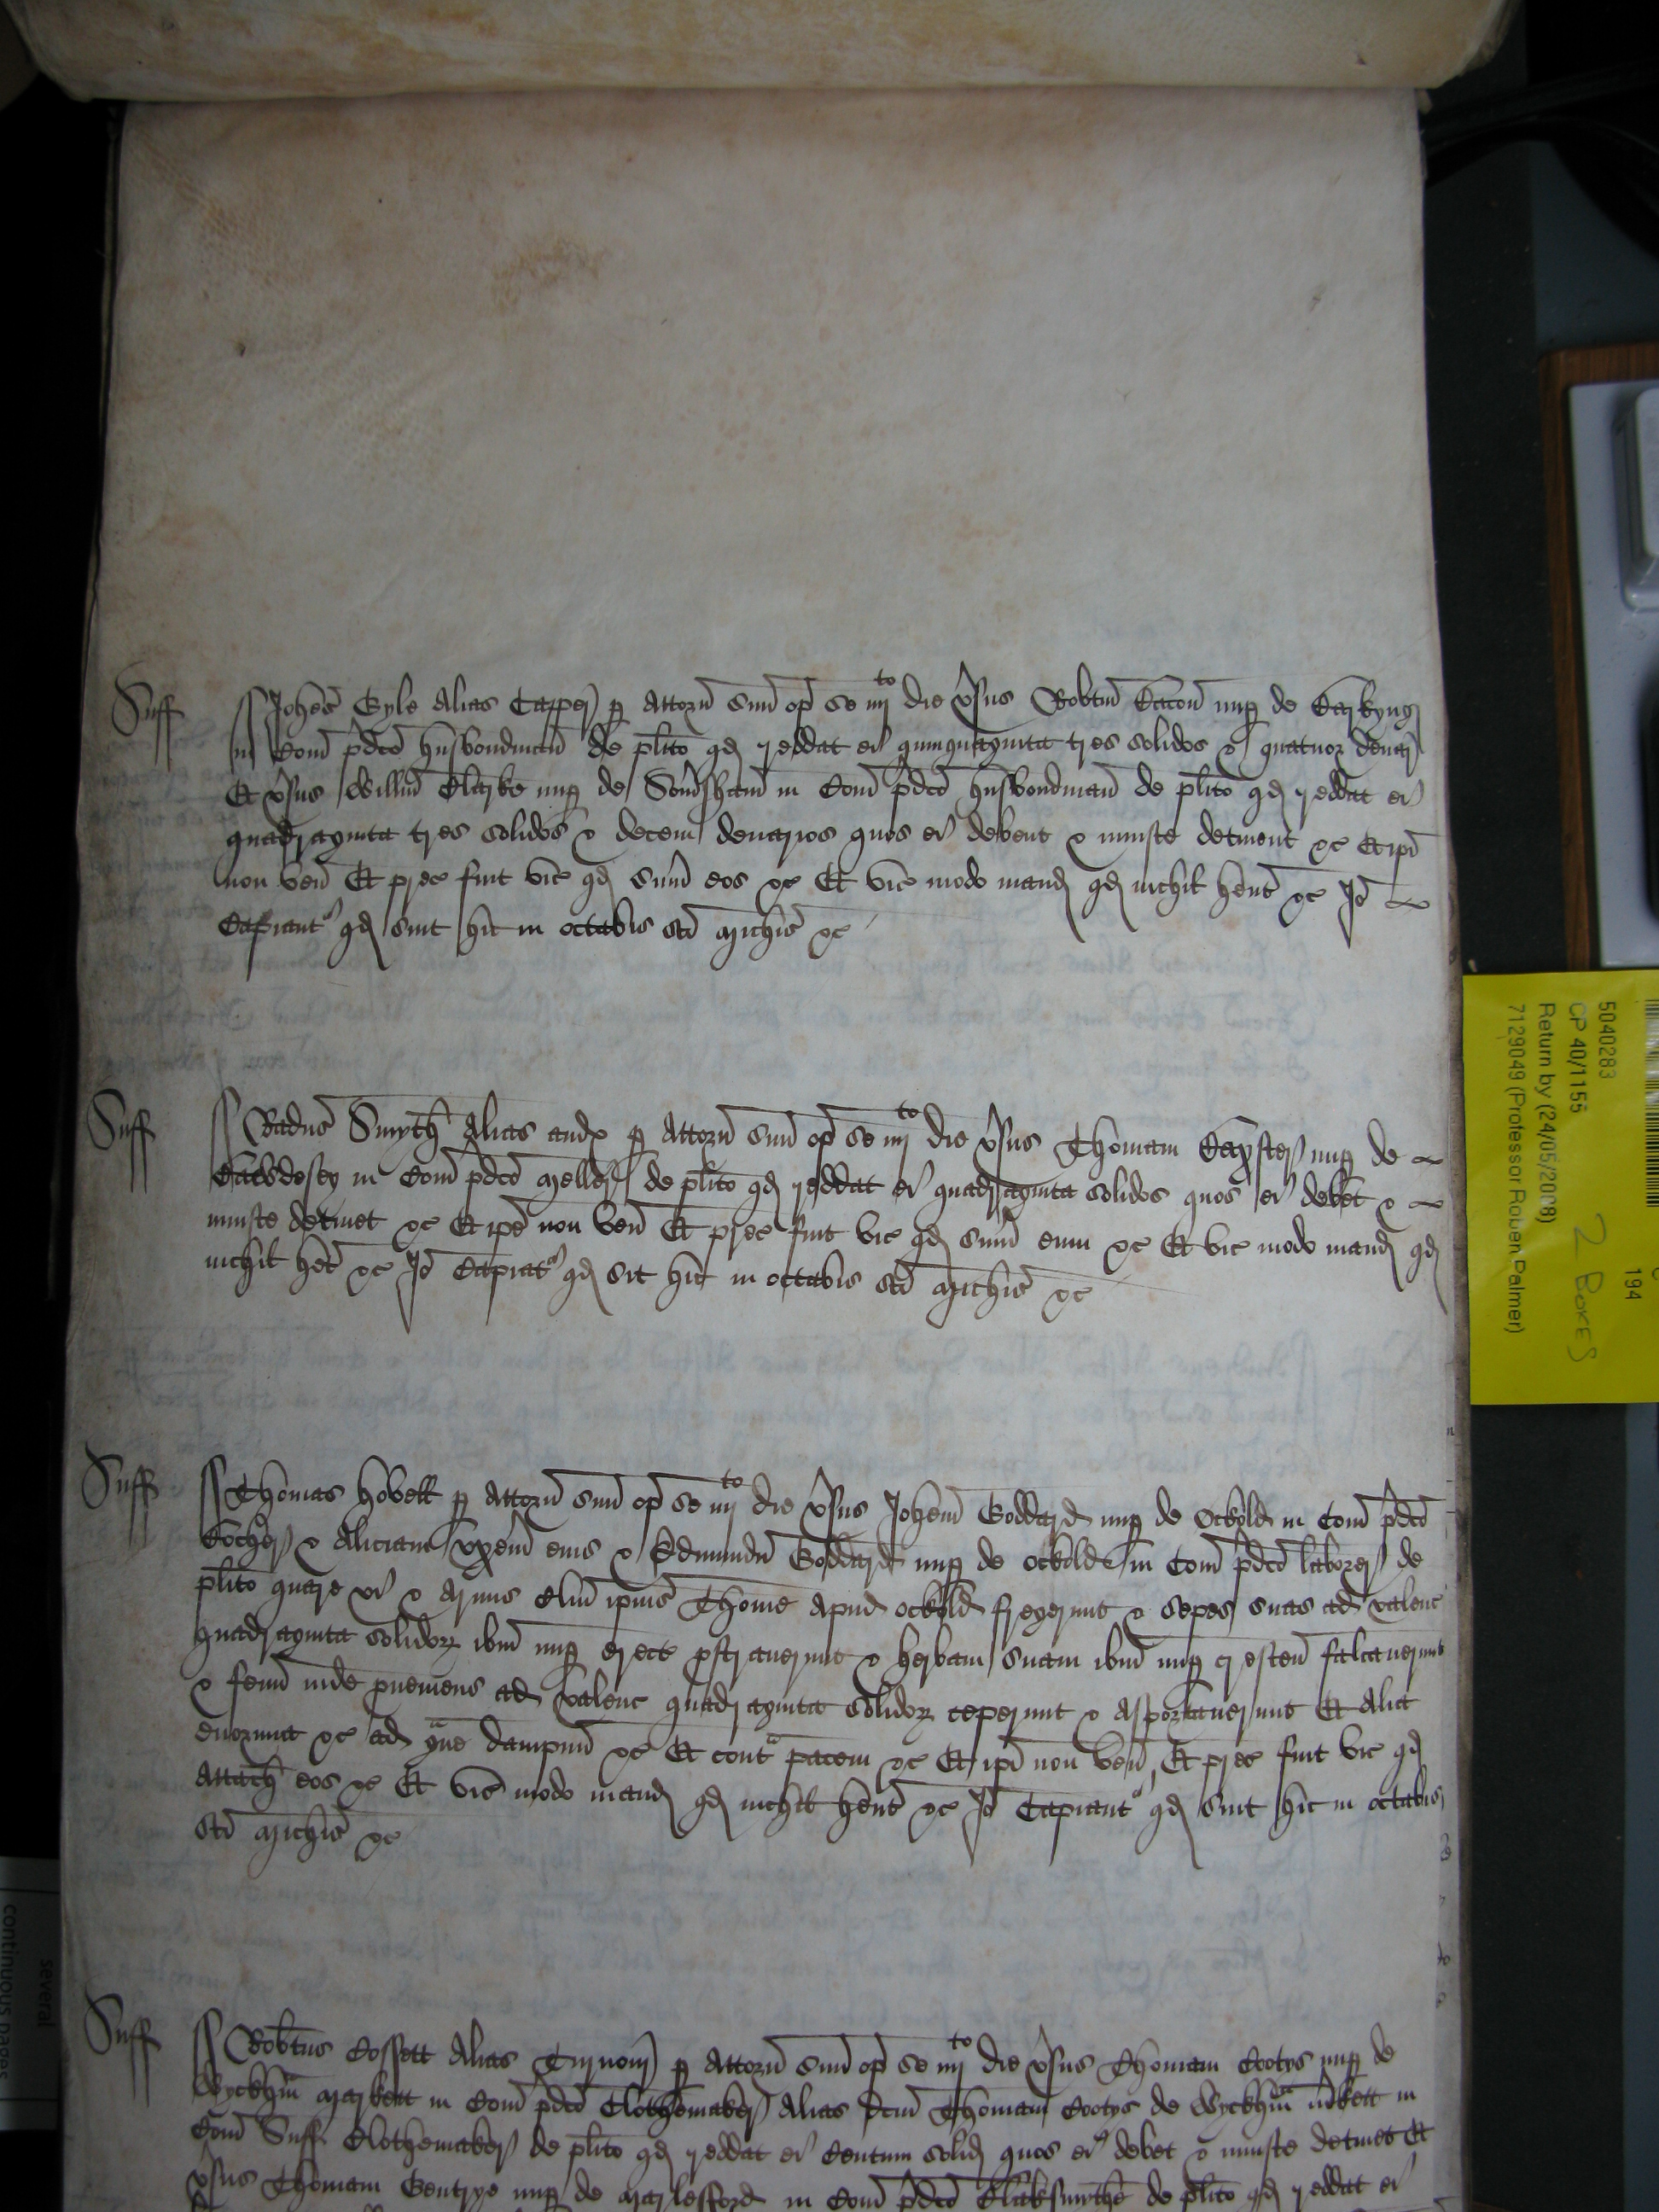 Suff Joħes Gyle Alias Tapper p Attorñ suũ op̃ se iiij to die v̉sus Robtũ Bacon nup de Barkyng
in Com̃ p̃dc̃o husbondmañ de pl̃ito qd reddat ei quinquaginta tres solidos & quatuor denar
Et v̉sus Willm̃ Clarke nup de Som̉shañ in Com̃ p̃dc̃o husbondmañ de pl̃ito qd reddat ei
quadraginta tres solidos & decem denarios quos ei debent & iniuste detinent &c Et ip̃i
non veñ Et prec̃ fuit vic̃ qd sum̃ eos &c Et vic̃ modo mand qd nichil hent &c Jõ
Capiant' qd sint hic in octabis sc̃i Mich̃is &c
Suff Radus Smyth Alias p Attorñ suũ op̃ se iiij to die v̉sus Thomam nup de
in Com̃ p̃dc̃o de pl̃ito qd reddat ei quadraginta solidos quos ei debet &
iniuste detinet &c Et ip̃e non veñ Et prec̃ fuit vic̃ qd sum̃ eum &c Et vic̃ modo mand qd
nichil het &c Jõ Capiat' qd sit hic in octabis sc̃i Mich̃is &c
Suff Thomas Hovell p Attorñ suũ op̃ se iiij to die v̉sus Joħem Goddard nup de Ockold in Com̃ p̃dc̃o
& Aliciam vxem̃ eius & Edmundũ Goddard nup de Ockold in Com̃ p̃dc̃o laborer de
pl̃ito quare vi & armis clm̃ ipius Thome apud Ockold fregerunt & sepes suas ad valenc̃
quadraginta solidoꝝ ibm̃ nup erect̃ pstrauerunt & herbam suam ibm̃ nup cresceñ falcauerunt
& fenũ inde pueniens ad valenc̃ quadraginta solidoꝝ ceperunt & asportauerunt Et Alia
enormia &c ad g̃ue dampnũ &c Et cont̃ pacem &c Et ip̃i non veñ Et prec̃ fuit vic̃ qd
Attach eos &c Et vic̃ modo mand qd nichil hent &c Jõ Capiant' qd sint hic in octabis
sc̃i Mich̃is &c
Suff Robtus Cossett Alias p Attorñ suũ op̃ se iiij to die v̉sus Thomam Cootys nup de
Wyckhm̃ Markett in Com̃ p̃dc̃o Clothemaker Alias dc̃m Thomam Cootys de Wyckhm̃ m̉kett in
Com̃ Suff Clothemaker de pl̃ito qd reddat ei Centum solid quos ei debet & iniuste detinet Et
v̉sus Thomam Gentrye nup de Marlesford in Com̃ p̃dc̃o Blaksmythe de pl̃ito qd reddat ei
5040283
CP 40/1155
Return by (24/05/2008)
7129049 (Professor Robert Palmer)
194
2 BOXES
several
continuous pages